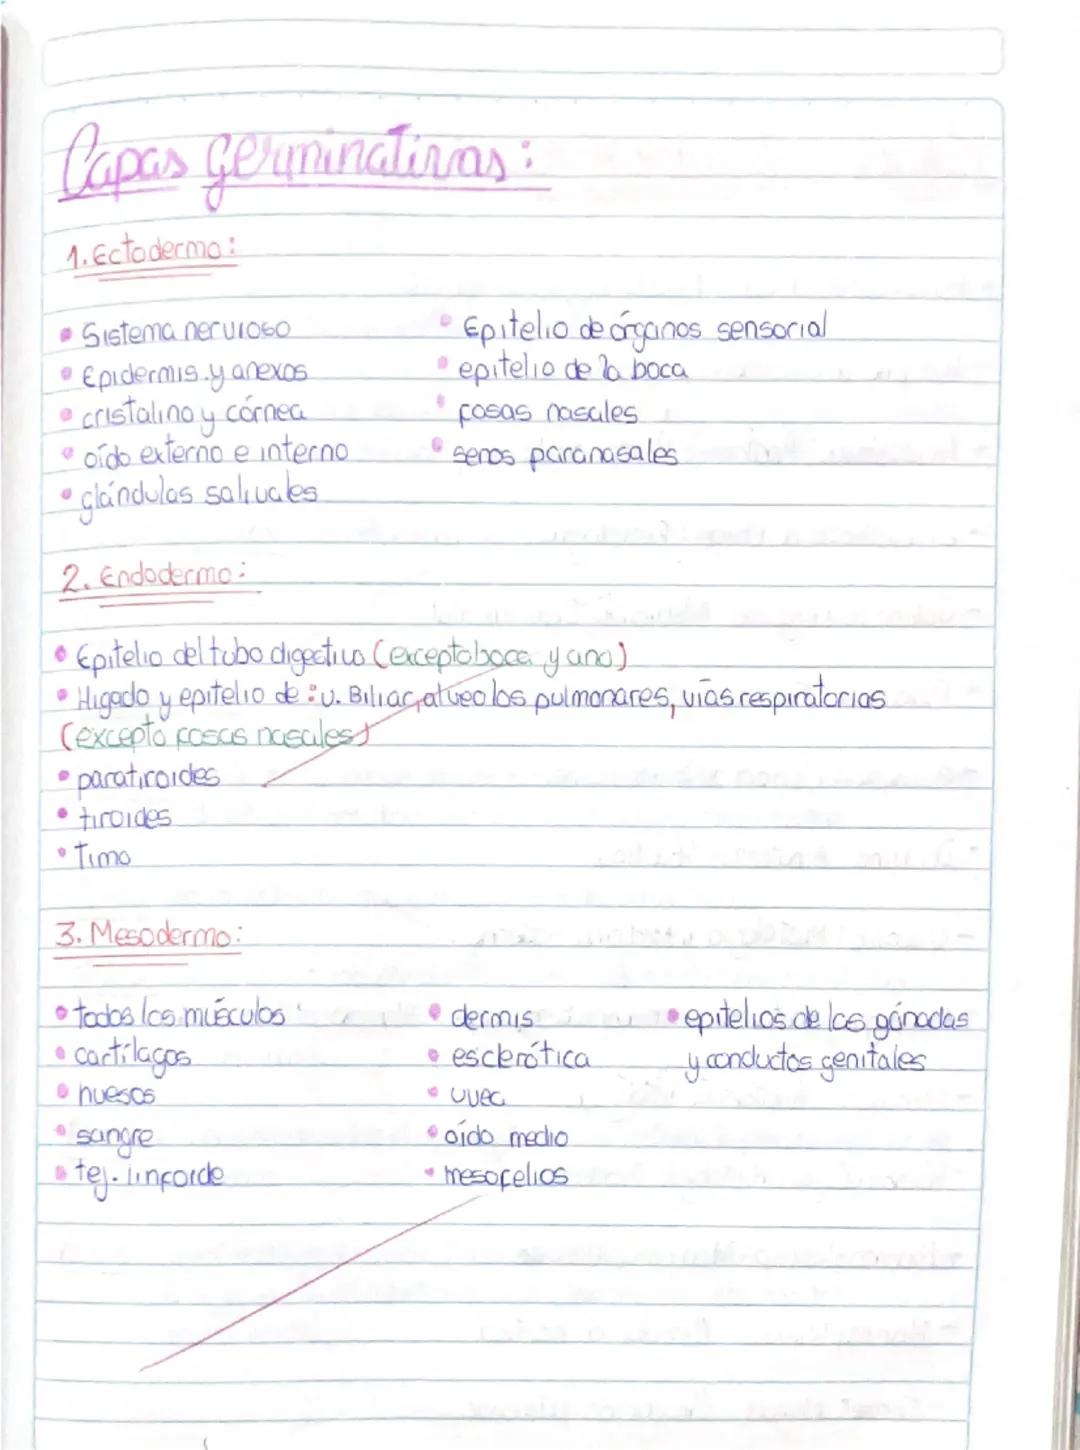 Capas germinativas:
1. Ectodermo:
• Sistema nervioso
• Epidermis y anexos
• cristalino y córnea
• oído externo e interno
• glándulas salivales
• Epitelio de órganos sensorial
• epitelio de la boca
• fosas nasales
• senos paranasales
2. Endodermo:
• Epitelio del tubo digestivo (excepto boca y ano)
• Higado y epitelio de: v. Biliar, alveolos pulmonares, vías respiratorias
(excepto fosas nasales)
• paratiroides
• tiroides
• Timo
3. Mesodermo:
• todos los músculos
• cartílagos
• huesos
• sangre
• tej. linfoide
• dermis
• esclerótica
• uvea
• oído medio
• mesotelios
• epitelios de las gónadas
y conductos genitales